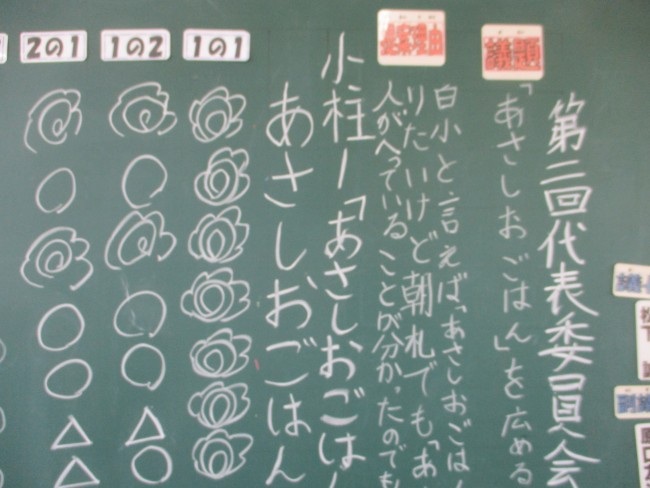 第二回代表委員会
議題
「あさしおごはん」を広める
提案理由
白小と言えば「あさしおごはん
りたいけど朝礼でも「あ
人がへっていることが分かったので
小柱一「あさしおごは
あさしおごはん
1の1
1の2
2の1